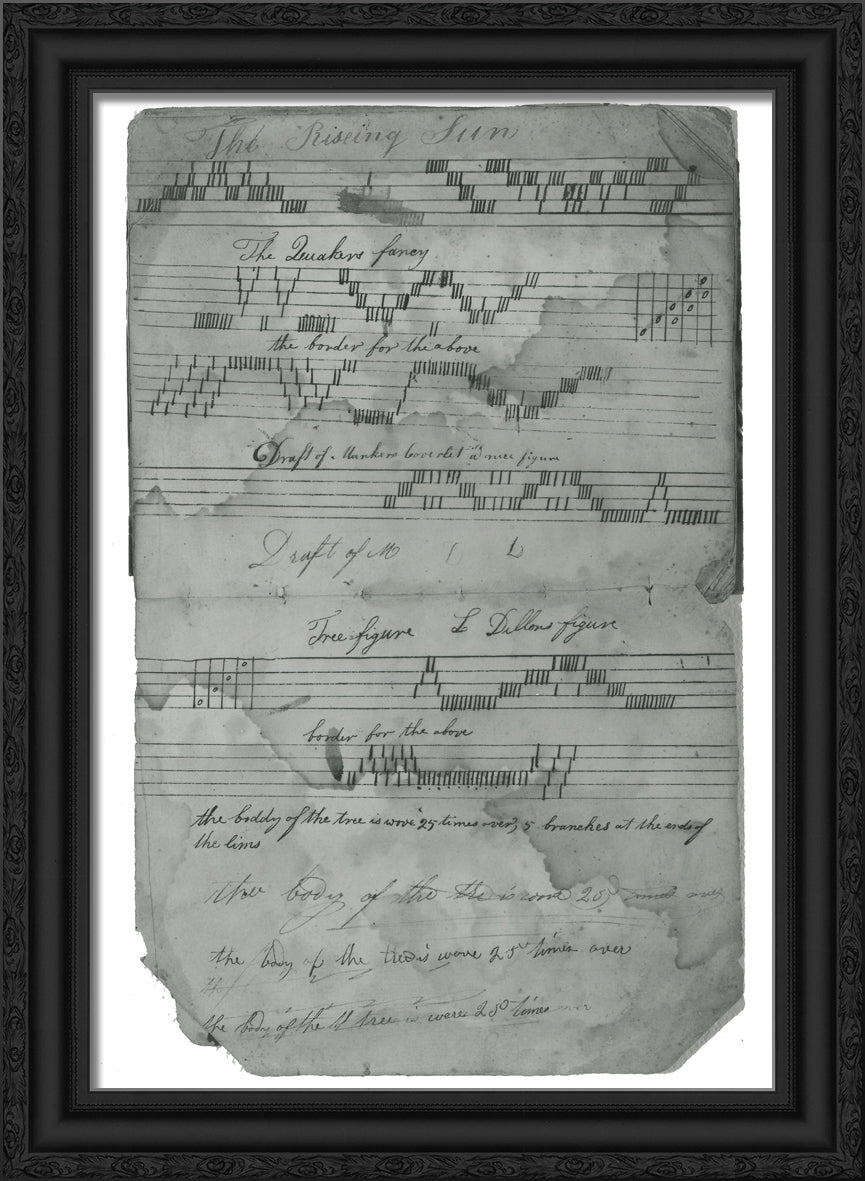 The Riseing Sun
The Quakers fancy
the border for the above
Draft of Coverlet a nice figure
Draft of M L
Tree figure L Dillons figure
border for the above
the boddy of the tree is wove 25 times over, 5 branches at the ends of
the lims
body of the tre is wove 25 times over
the body of the tree is wove 25 times over
the body of the tree is wove 25 times